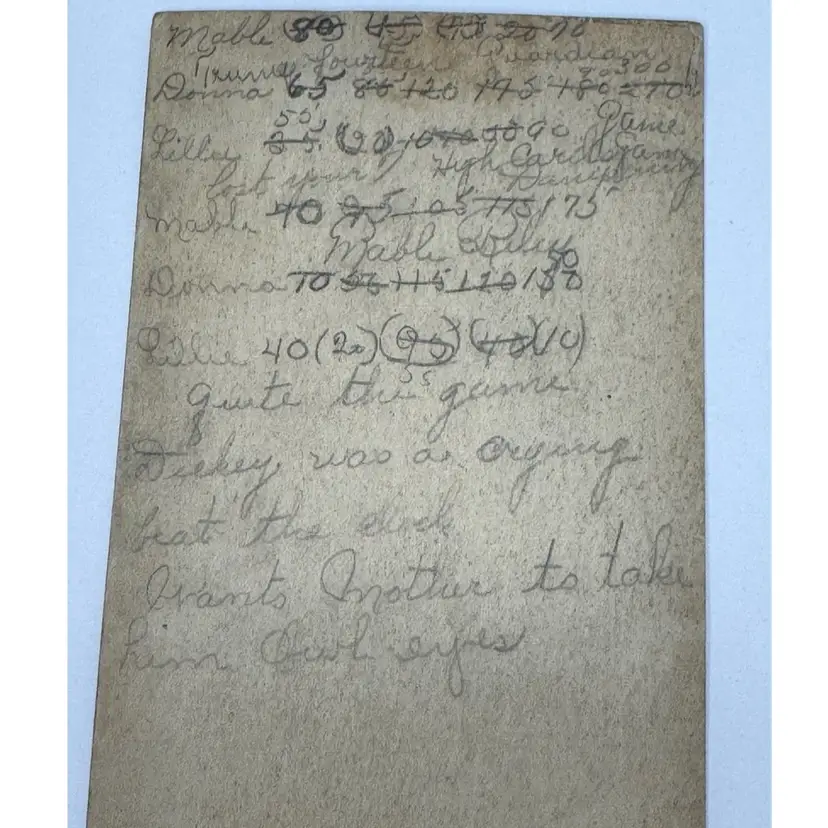 Mable (80) 45 (45) 20 70
Trump fourteen Guardian
Donna 65 85 120 145 180 270 300
55
Lillie 25 (20) 10 90 Game
lost your High Card Game
Mable 40 95 105 115 175
Mable
50
Donna 70 115 120
Lillie 40 (20) (95) (10)
55
quite the game
Dickey was a crying
beat the clock
Wants Mother to take
him Owl eyes